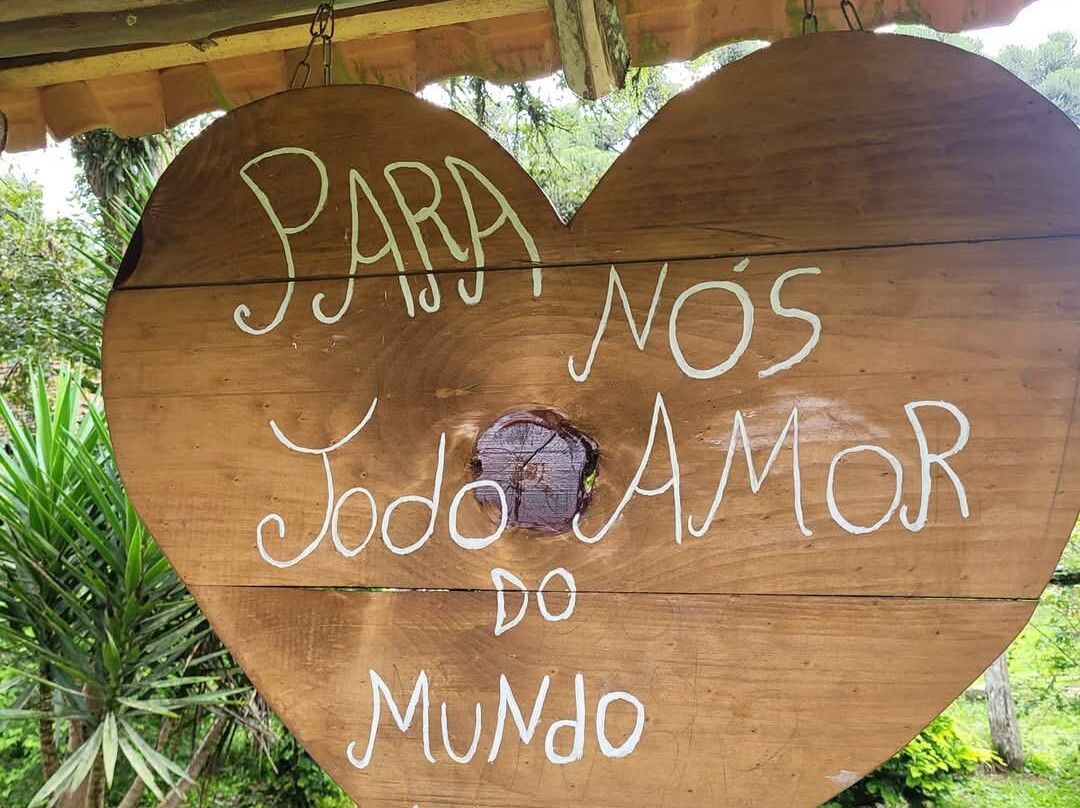 PARA
NÓS
Todo AMOR
DO
MUNdO